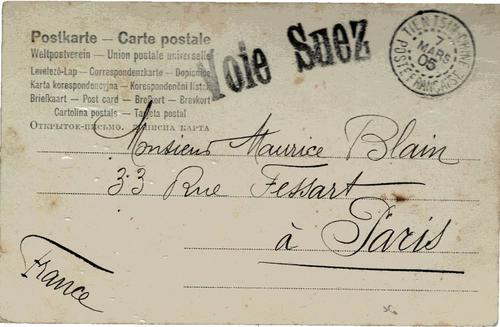 Postkarte — Carte postale
Weltpostverein — Union postale universelle
Levelező-Lap — Correspondenzkarte — Dopisnice
Karta korespondencyjna — Korespondenční lístek
Briefkaart — Post card — Brefkort — Brevkort
Cartolina postale — Tarjeta postal
Открытое-письмо.
Voie Suez
TIENTSIN-CHINE
7
MARS
05
POSTE FRANÇAISE
Monsieur Maurice Blain
33 Rue Fessart
à Paris
France